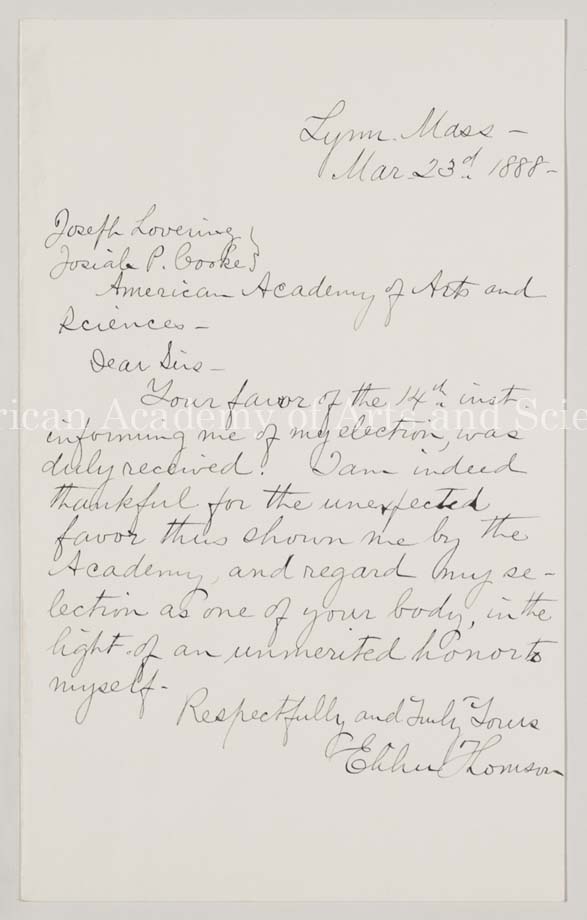 Lynn. Mass –
Mar. 23d. 1888 –
Joseph Lovering }
Josiah P. Cooke }
American Academy of Arts and
Sciences –
Dear Sirs –
Your favor of the 14th. inst.
rican Academy of Arts and Scie
informing me of my election, was
duly received. I am indeed
thankful for the unexpected
favor thus shown me by the
Academy, and regard my se-
lection as one of your body, in the
light of an unmerited honor to
myself –
Respectfully and Truly Yours
Elihu Thomson